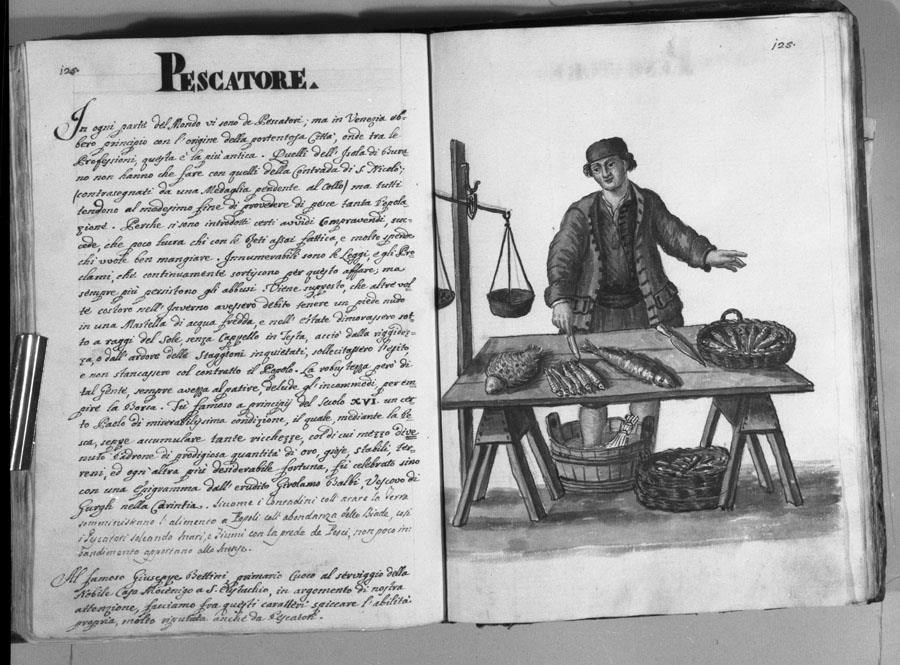 125.
PESCATORE.
In ogni parte del Mondo vi sono de Pescatori; ma in Venezia eb-
bero principio con l'origine della portentosa Città, onde tra le
Professioni, questa è la più antica. Quelli dell'Isola di Bura
no non hanno che fare con quelli della Contrada di S. Nicolò;
(contrasegnati da una Medaglia pendente al Collo) ma tutti
tendono al medesimo fine di provedere di pesce tanta Popola
zione. Perche si sono introdotti certi avvidi Compravendi, suc-
cede, che poco lucra chi con le Reti assai fattica, e molto spende
chi vuole ben mangiare. Innumerabili sono le Leggi, e gli Pro
clami, che continuamente sortiscono per questo affare; ma
sempre più persistono gli abbusi. Viene supposto, che altre vol-
te costoro nell'Inverno avessero debito tenere un piede nudo
in una Mastella di acqua fredda, e nell'Estate dimorassero sot
to a raggi del Sole, senza Cappello in Testa, acciò dalla riggidez-
za, o dall'ardore delle Staggioni inquietati, sollecitassero l'esito
e non stancassero col contratto il Popolo. La robustezza però di
tal Gente, sempre avezza al patire, delude gl'incommodi, per em
pire la Borsa. Fu famoso a principij del Secolo XVI. un cer
to Paolo di miserabilissima condizione, il quale, mediante la Pe
sca, seppe accumulare tante ricchezze, col di cui mezzo dive-
nuto Padrone di prodigiosa quantità di oro, gioje, stabili, ter-
reni, ed ogn'altra più desiderabile fortuna, fù celebrato sino
con una Epigramma dall'erudito Girolamo Balbi, Vescovo di
Gurgh nella Carintia. Siccome i Contadini coll'arare la Terra
somministrano l'alimento a Popoli coll'abondanza delle Biade, così
i Pescatori solcando Mari, e Fiumi con la preda de Pesci, non poco im
bandimento apportano alle Mense.
Al famoso Giuseppe Bettini primario Cuoco al serviggio della
Nobile Casa Mocenigo a S. Eustachio, in argomento di nostra
attenzione, facciamo fra questi caratteri spiccare l'abilità
propria, molto riputata anche da Pescatori.
125.